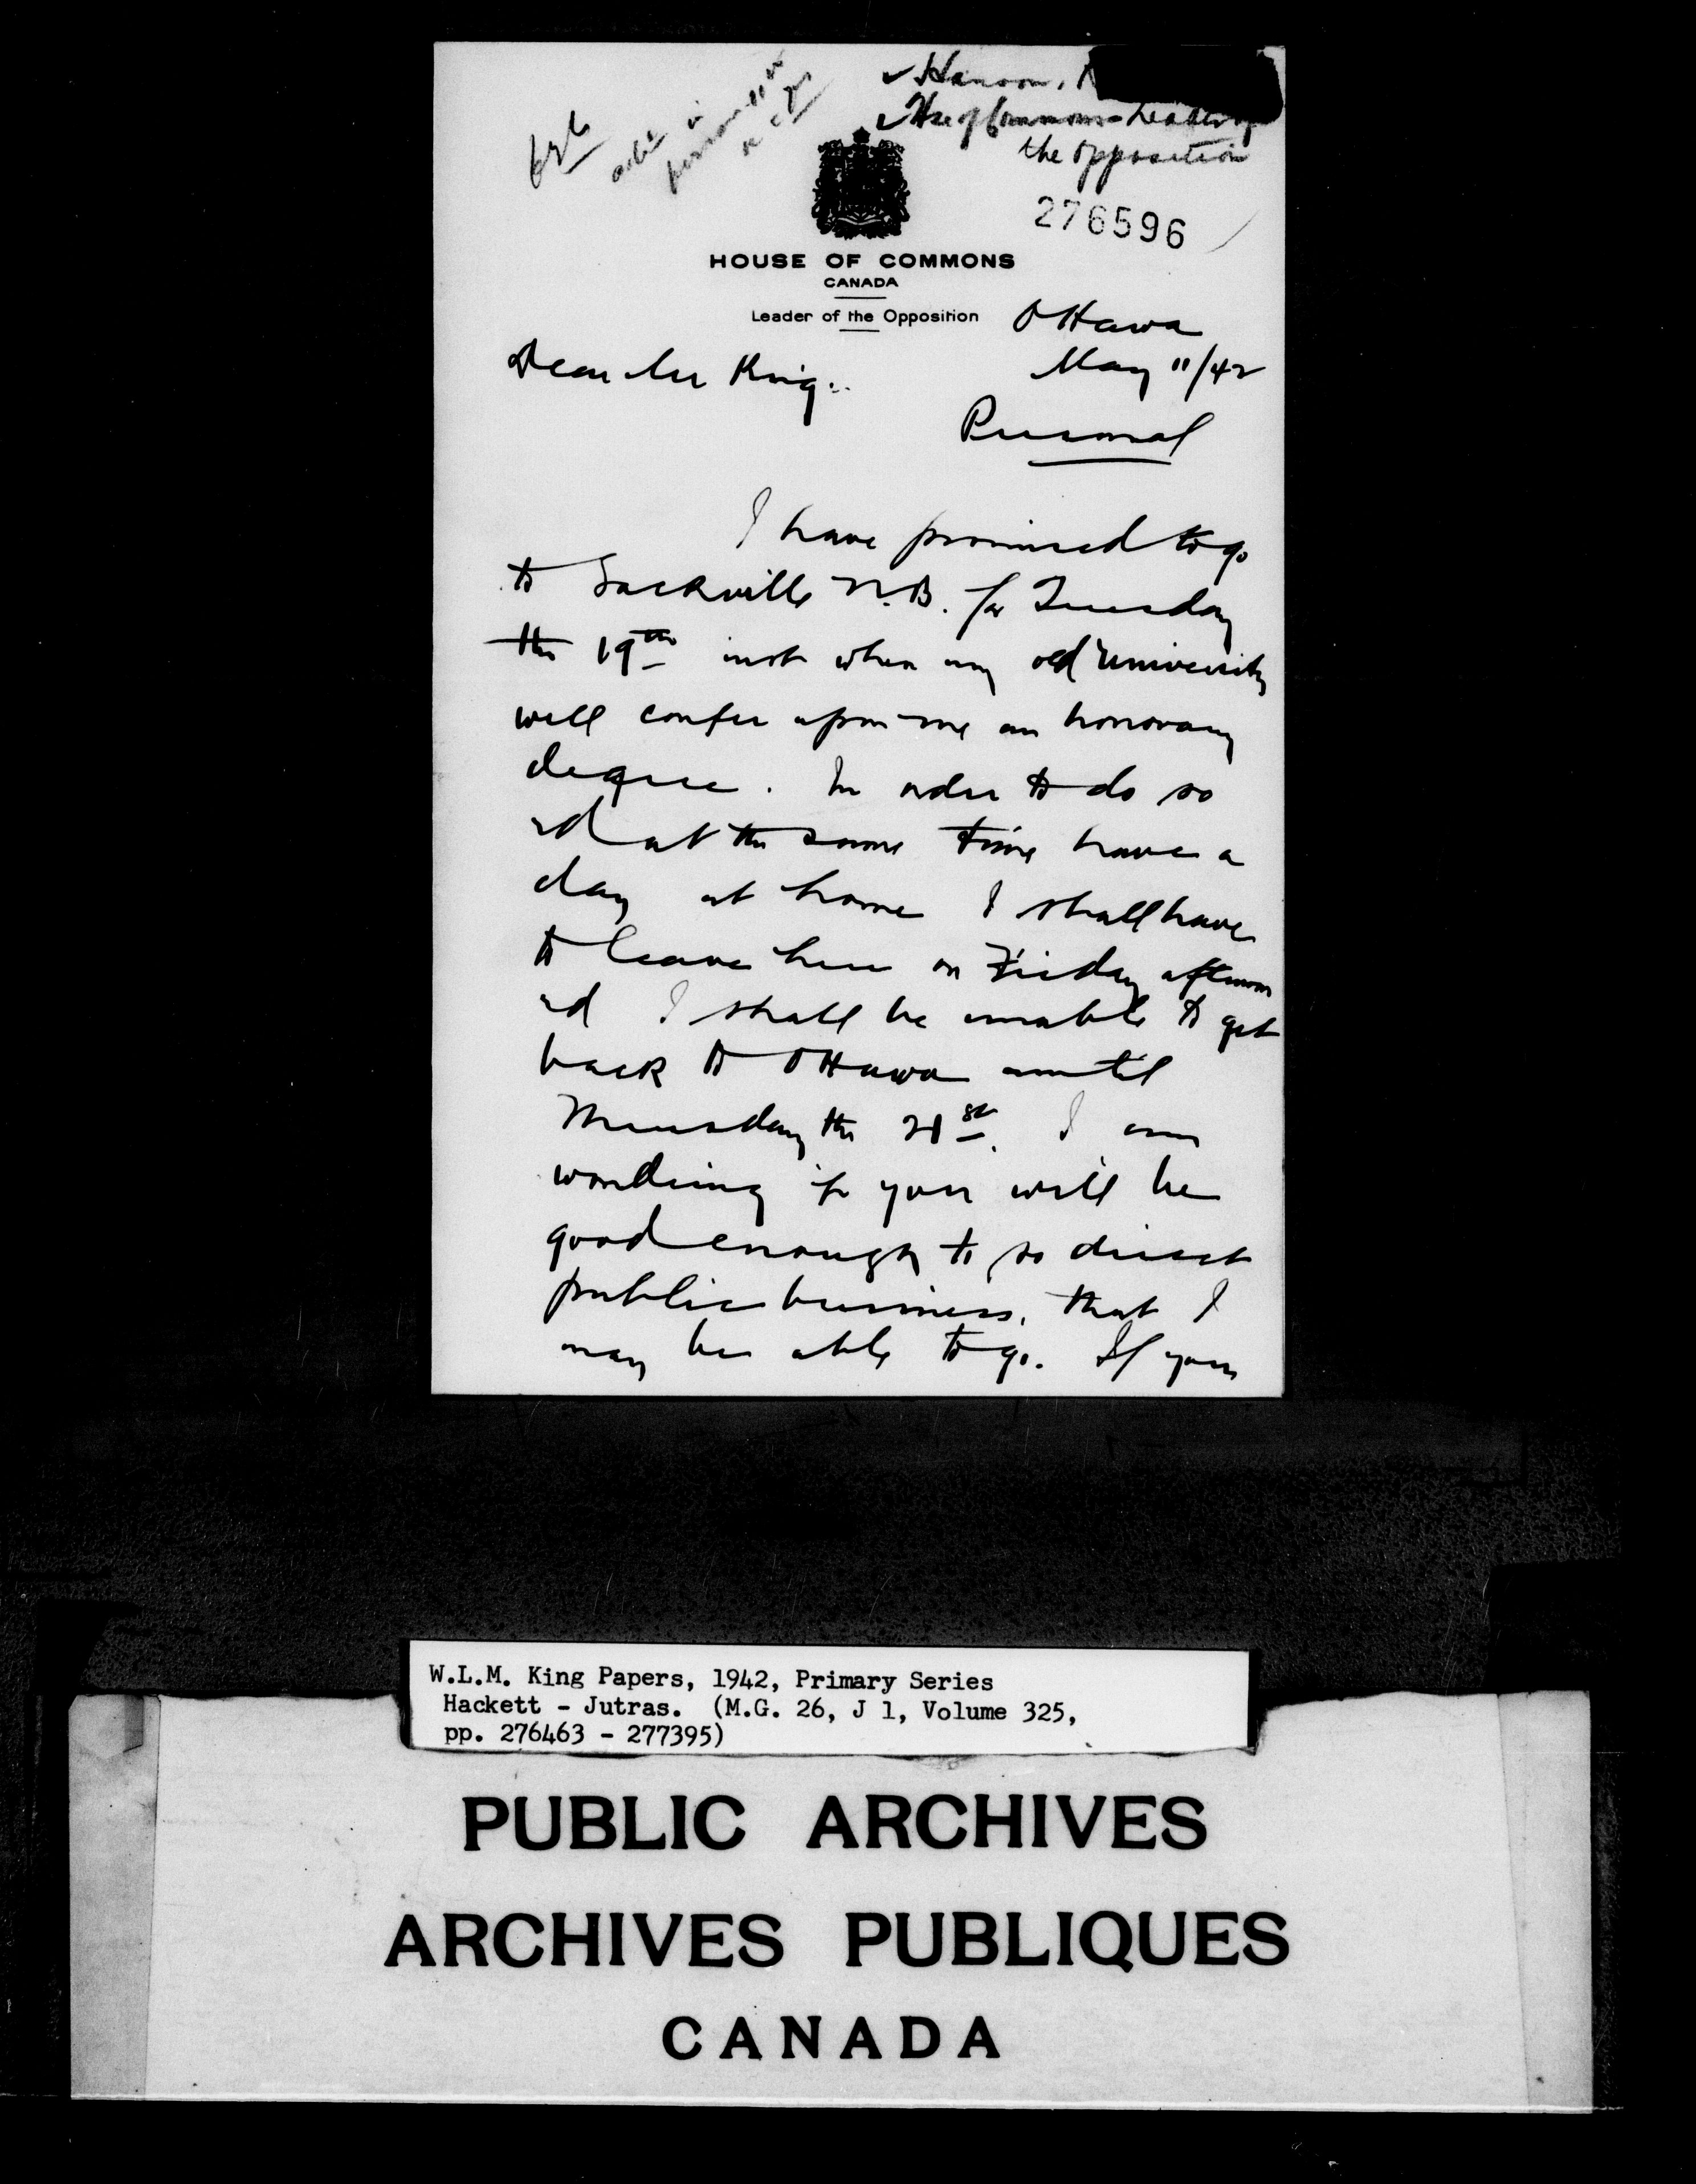 ✓ Hanson,
✓ Hse of Commons - Leader of
the opposition
276596
HOUSE OF COMMONS
CANADA
Leader of the Opposition
Ottawa
May 11/42
Dear Mr King:
Personal
I have promised to go
to Sackville N.B. for Tuesday
the 19th inst when my old University
will confer upon me an honorary
degree. In order to do so
and at the same time have a
day at home I shall have
to leave here on Friday afternoon
and I shall be unable to get
back to Ottawa until
Thursday the 21st. I am
wondering if you will be
good enough to so direct
public business, that I
may be able to go. If you
W.L.M. King Papers, 1942, Primary Series
Hackett - Jutras. (M.G. 26, J 1, Volume 325,
pp. 276463 - 277395)
PUBLIC ARCHIVES
ARCHIVES PUBLIQUES
CANADA